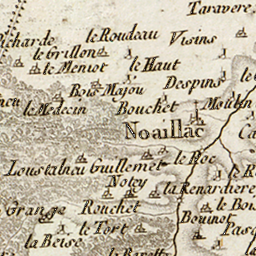 Taravere
le Roudeau
Visins
le Grillon
le Meniot
le Haut
Bois Majou
Despins
le Medecin
Bouchet
Moulin
Noaillac
Loustalneu
Guillemet
le Roc
Notey
la Renardiere
Grange
Rouchet
le Bois
Bouinot
le Tort
la Beise